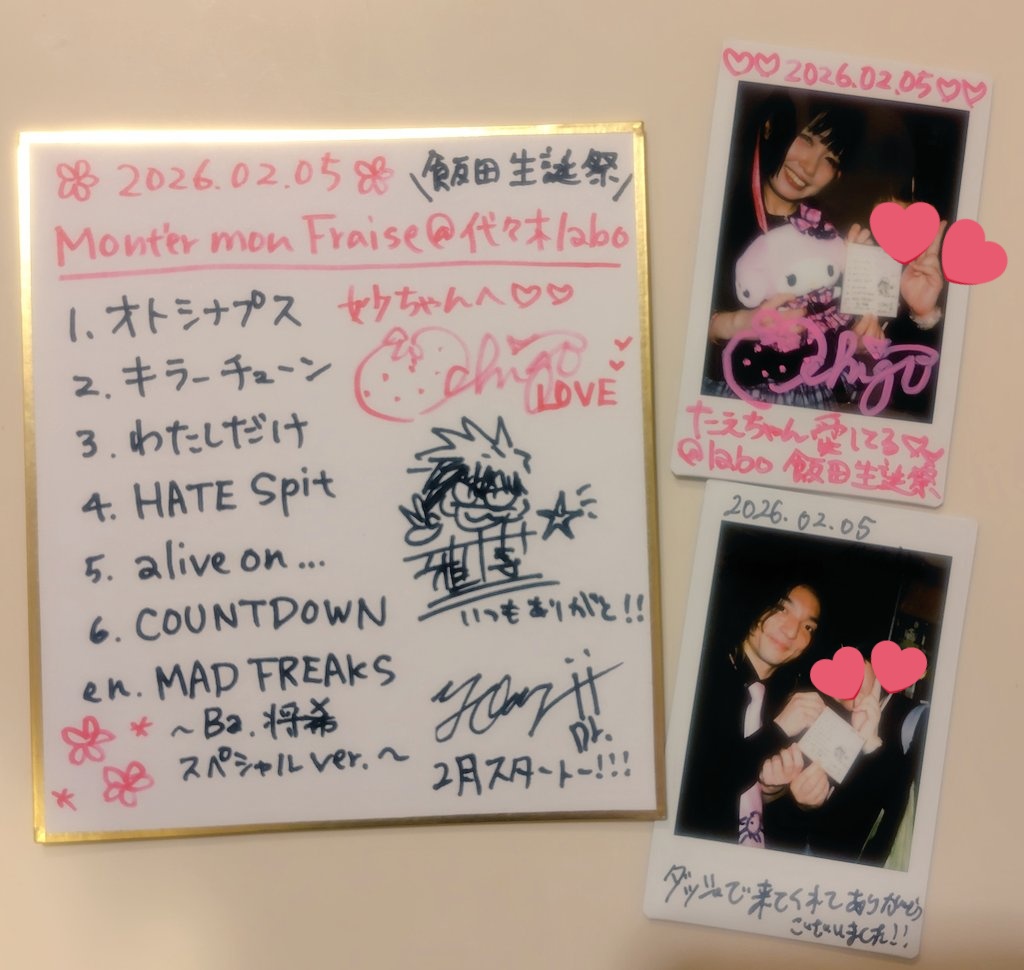 2026.02.05
\飯田生誕祭/
Monter mon Fraise@代々木labo
1. オトシナプス
妙ちゃんへ♡♡
2. キラーチューン
ichigo
LOVE
3. わたしだけ
4. HATE Spit
5. alive on...
6. COUNTDOWN
いつもありがと!!
en. MAD FREAKS
~Ba. 将希
スペシャルver.~
Dr.
2月スタートー!!!
♡♡2026.02.05♡♡
ichigo
たえちゃん愛してる♡
@labo 飯田生誕祭
2026.02.05
ダッシュで来てくれてありがとう
ございました!!